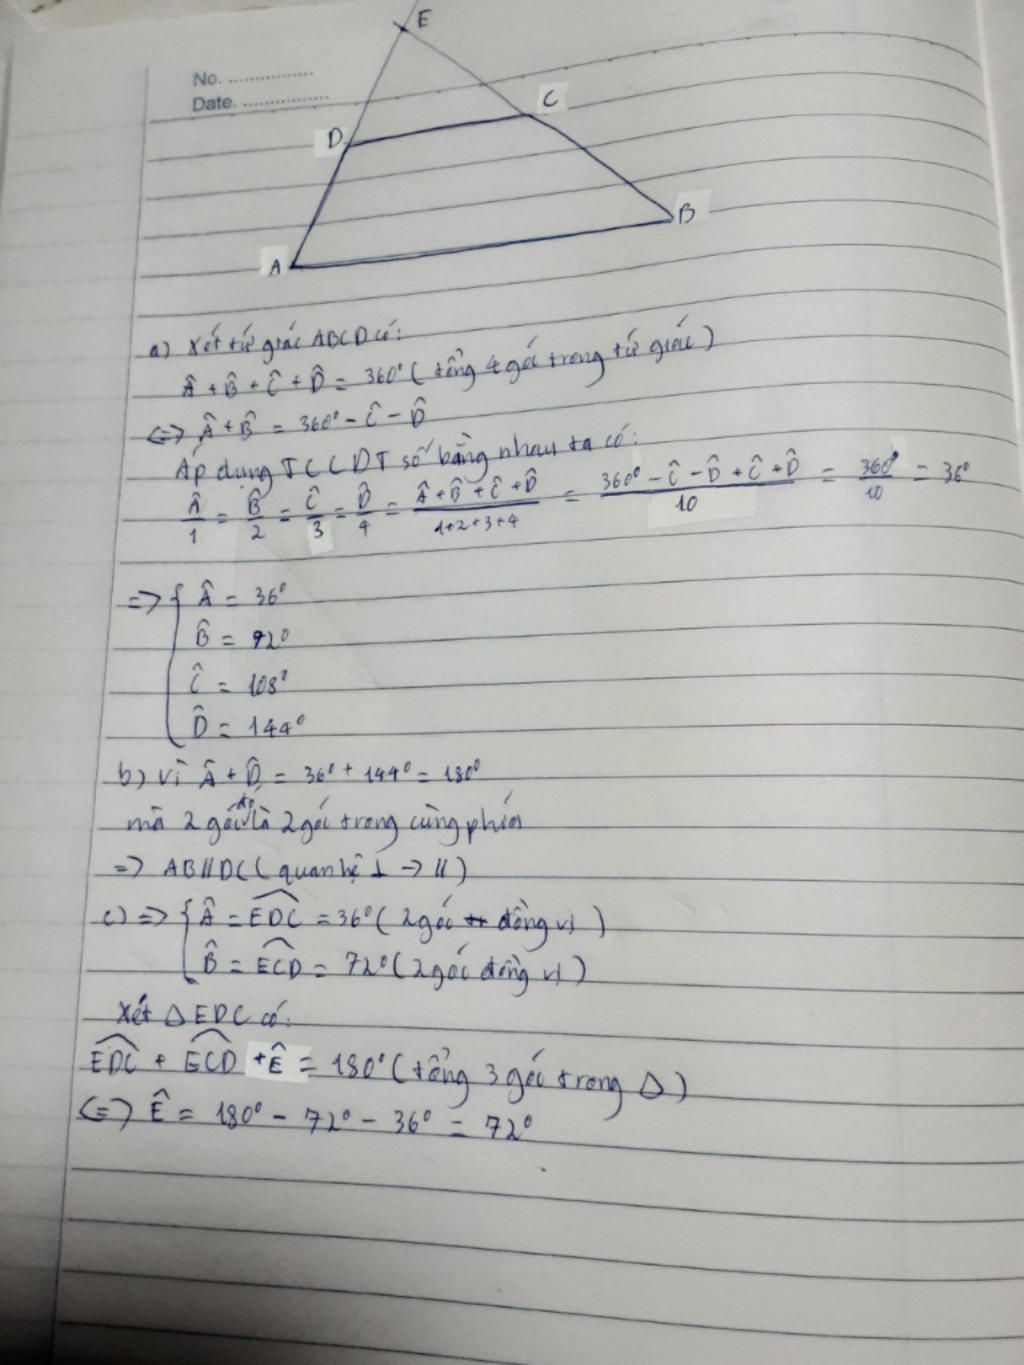 E
No. ................
Date. ................
C
D
B
A
a) Xét tứ giác ABCD có:
Â + B̂ + Ĉ + D̂ = 360° ( tổng 4 góc trong tứ giác )
<=> Â + B̂ = 360° - Ĉ - D̂
Áp dụng TCCDT số bằng nhau ta có:
Â/1 = B̂/2 = Ĉ/3 = D̂/4 = (Â + B̂ + Ĉ + D̂)/(1+2+3+4) = (360° - Ĉ - D̂ + Ĉ + D̂)/10 = 360°/10 = 36°
=> { Â = 36°
B̂ = 72°
Ĉ = 108°
D̂ = 144°
b) Vì Â + D̂ = 36° + 144° = 180°
mà 2 góc đó là 2 góc trong cùng phía
=> AB // DC ( quan hệ ⊥ -> // )
c) => { Â = EDC = 36° ( 2 góc đồng vị )
B̂ = ECD = 72° ( 2 góc đồng vị )
Xét Δ EDC có:
EDC + ECD + Ê = 180° ( tổng 3 góc trong Δ )
<=> Ê = 180° - 72° - 36° = 72°